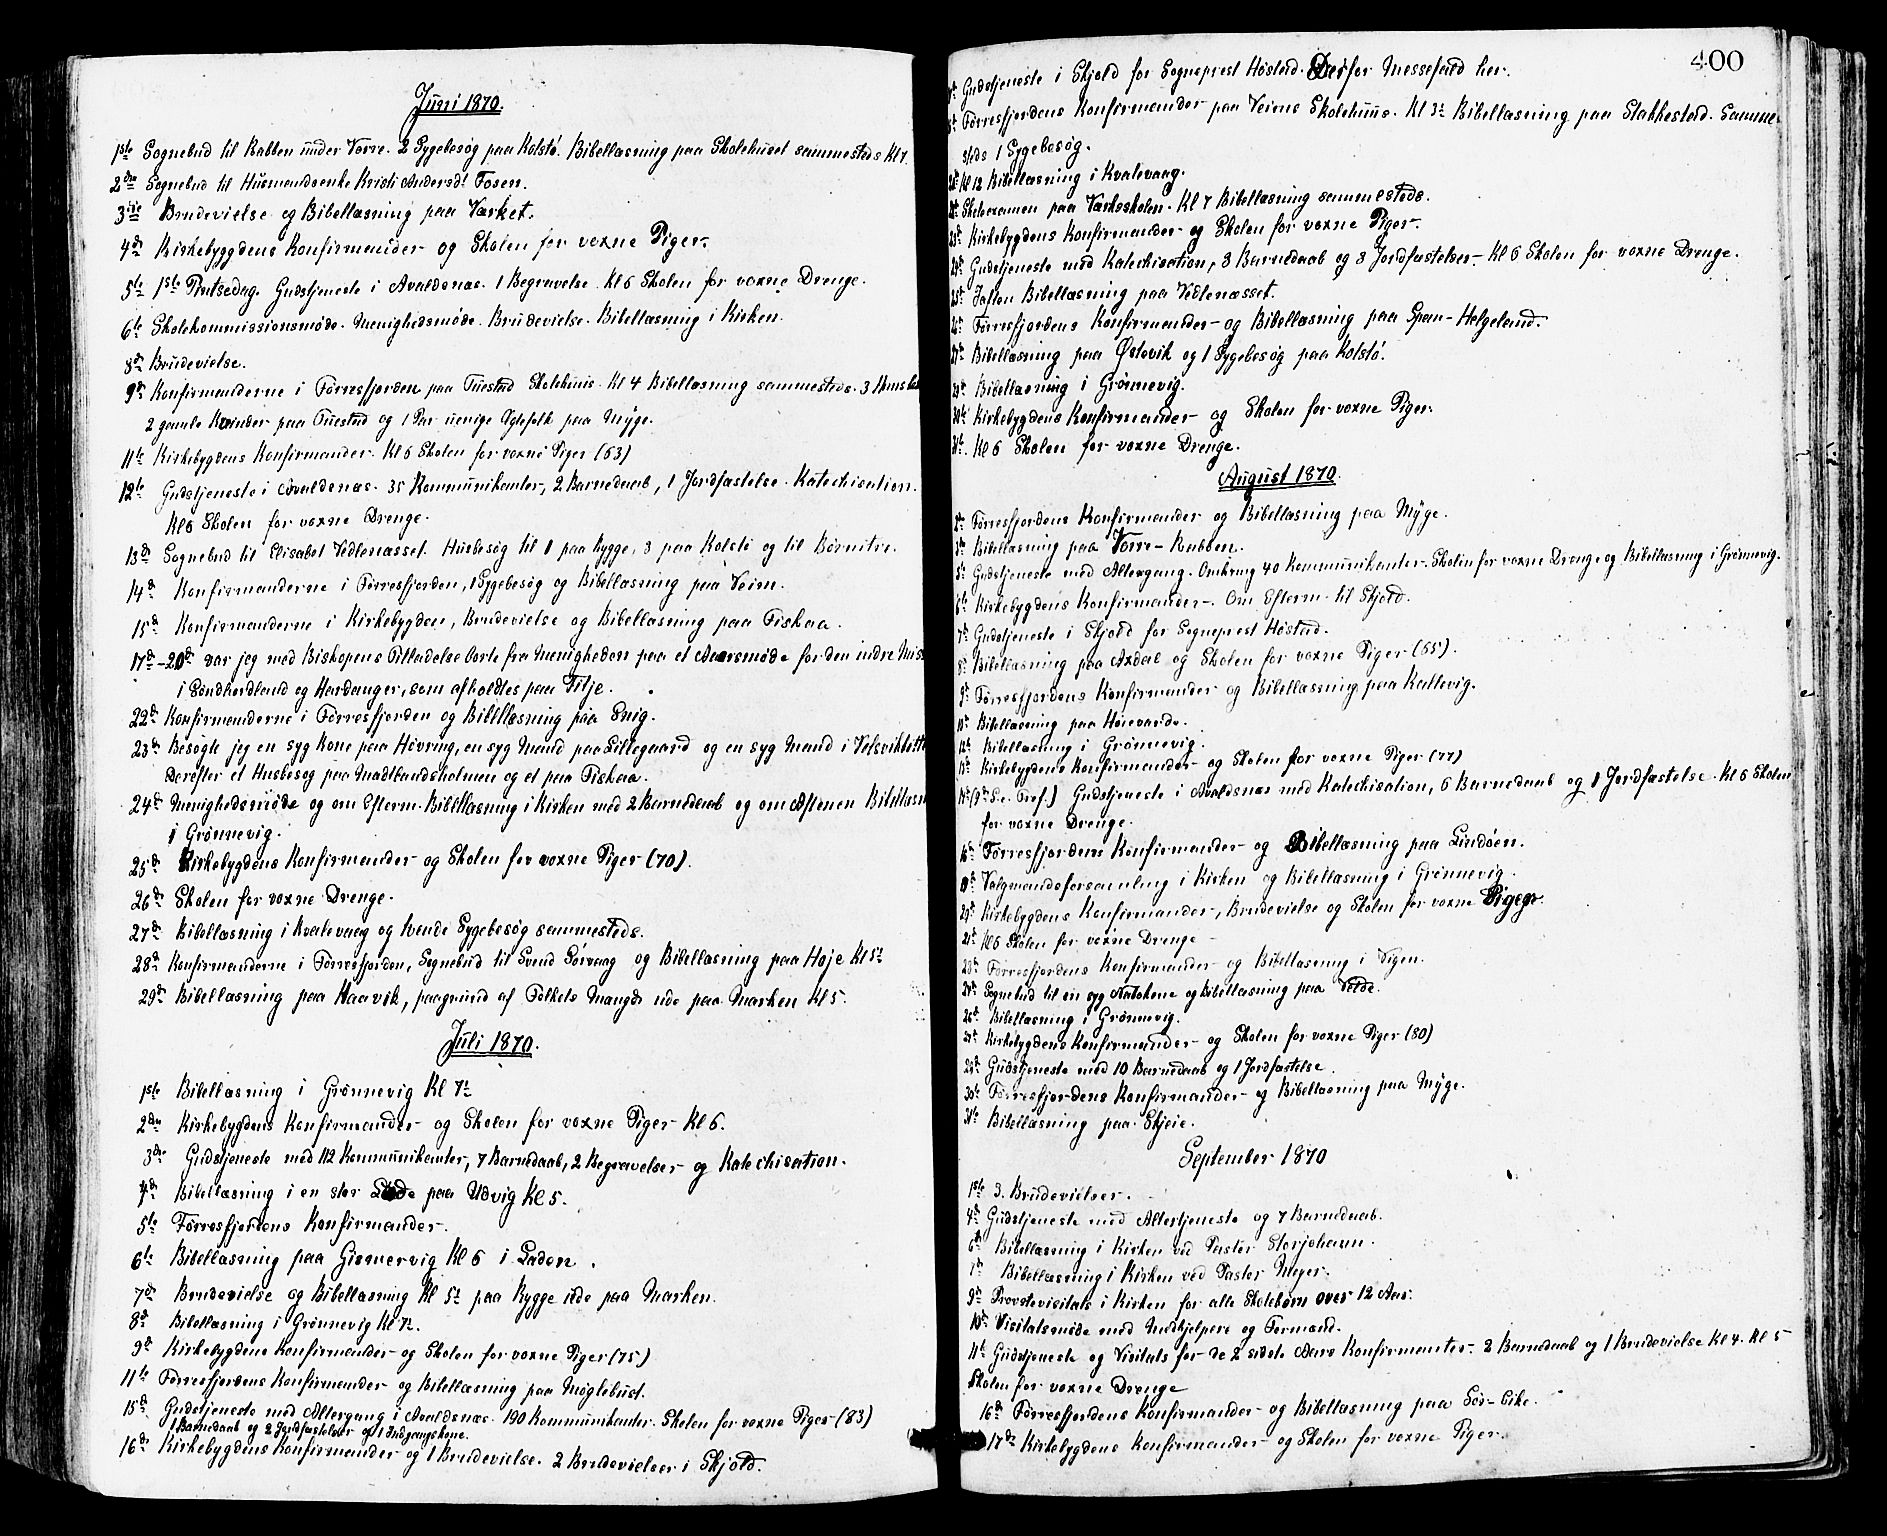 Juni 1870.
1ste Sognebud til Rabben under Vorre. 2 Sygebesøg paa Kolstø. Bibellæsning paa Skolehuset sammesteds Kl 7.
2den Sognebud til Husmandsenke Kristi Andersdt Fosen.
3die Brudevielse og Bibellæsning paa Værket.
4de Kirkebyggdens Konfirmander og Skolen for voxne Piger.
5te 1ste Pintsedag. Gudstjeneste i Avaldsnæs. 1 Begravelse. Kl 6 Skolen for voxne Drenge.
6te Skolekommissionsmøde. Menighedsmøde. Brudevielse. Bibellæsning i Kirken.
8de Brudevielse.
9de Konfirmanderne i Førresfjorden paa Tuestad Skolehuus. Kl 4 Bibellæsning sammesteds. 3
2 gamle Kvinder paa Tuestad og 1 Par uenige Ægtefolk paa Myge.
11te Kirkebygdens Konfirmander. Kl 6 Skolen for voxne Piger (63)
12te Gudstjeneste i Avaldsnæs. 35 Kommunikanter, 2 Barnedaab, 1 Jordfæstelse. Katechisation.
Kl 6 Skolen for voxne Drenge.
13de Sognebud til Elisabet Vedlenæsset. Husbesøg til 1 paa Rygge, 3 paa Kolstø og til
14de Konfirmanderne i Førresfjorden, 1 Sygebesøg og Bibellæsning paa Veim.
15de Konfirmanderne i Kirkebygden, Brudevielse og Bibellæsning paa Fiskaa.
17de-20de var jeg med Biskopens Tilladelse borte fra Menigheden paa et Aarsmøde for den indre Miss
i Søndhordland og Hardanger, som afholdtes paa Fitje.
22de Konfirmanderne i Førresfjorden og Bibellæsning paa Snig.
23de Besøgte jeg en syg Kone paa Høvring, en syg Mand paa Lillegaard og en syg Mand i
derefter et Husbesøg paa Madlandsholmen og et paa Fiskaa.
24de Menighedsmøde og om Efterm. Bibellæsning i Kirken med 2 Barnedaab og om Aftenen Bibellæsn
i Grønnevig.
25de Kirkebygdens Konfirmander og Skolen for voxne Piger (70).
26de Skolen for voxne Drenge.
27de Bibellæsning i Kvalevaag og tvende Sygebesøg sammesteds.
28de Konfirmanderne i Førresfjorden, Sognebud til Svend Sørvaag og Bibellæsning paa Høje Kl 5½
29de Bibellæsning paa Haavik, paagrund af Folkets Mængde ude paa Marken Kl 5.
Juli 1870.
1ste Bibellæsning i Grønnevig Kl 7½
2den Kirkebygdens Konfirmander og Skolen for voxne Piger Kl 6.
3die Gudstjeneste med 112 Kommunikanter, 7 Barnedaab, 2 Begravelser og Katechisation.
4de Bibellæsning i en stor Lade paa Udvig Kl 5.
5te Førresfjordens Konfirmander.
6te Bibellæsning paa Gismervig Kl 6 i Laden.
7de Brudevielse og Bibellæsning Kl 5½ paa Rygge ude paa Marken.
8de Bibellæsning i Grønnevig Kl 7½.
9de Kirkebygdens Konfirmander og Skolen for voxne Piger (75)
11te Førresfjordens Konfirmander og Bibellæsning paa Møglebust.
15de Gudstjeneste med Altergang i Avaldsnæs. 190 Kommunikanter. Skolen for voxne Piger (83)
1 Barnedaab og 2 Jordfæstelser og 1 Indgangskone.
16de Kirkebygdens Konfirmander og 1 Brudevielse. 2 Brudevielser i Skjold.
400
Gudstjeneste i Skjold for Sogneprest Høstad. Derfor Messefald her.
Førresfjordens Konfirmander paa Veims Skolehuus. Kl 3½ Bibellæsning paa Stakkestad. Samme-
steds 1 Sygebesøg.
Kl 12 Bibellæsning i Kvalevaag.
Skoleexamen paa Værksskolen. Kl 7 Bibellæsning sammesteds.
23de Kirkebygdens Konfirmander og Skolen for voxne Piger.
24de Gudstjeneste med Katechisation, 3 Barnedaab og 3 Jordfæstelser. Kl 6 Skolen for voxne Drenge.
25de Jaften Bibellæsning paa Vedlenæsset.
26de Førresfjordens Konfirmander og Bibellæsning paa Span-Helgeland.
27de Bibellæsning paa Østevik og 1 Sygebesøg paa Kolstø.
29de Bibellæsning i Grønnevig.
30te Kirkebygdens Konfirmander og Skolen for voxne Piger.
31te. Kl 6 Skolen for voxne Drenge.
August 1870.
2den Førresfjordens Konfirmander og Bibellæsning paa Myge.
3die Bibellæsning paa Vorre-Rabben.
5te Gudstjeneste med Altergang. Omkring 40 Kommunikanter. Skolen for voxne Drenge og Bibellæsning i Grønnevig.
6te Kirkebygdens Konfirmander. Om Efterm. til Skjold.
7de Gudstjeneste i Skjold for Sogneprest Høstad.
8de Bibellæsning paa Axdal og Skolen for voxne Piger (65).
9de Førresfjordens Konfirmander og Bibellæsning paa Kallevig.
11te Bibellæsning paa Hørevarde.
12te Bibellæsning i Grønnevig.
13de Kirkebygdens Konfirmander og Skolen for voxne Piger (77)
14de (9de S. e. Tref.) Gudstjeneste i Avaldsnæs med Katechisation, 6 Barnedaab og 1 Jordfæstelse. Kl 6 Skolen
for voxne Drenge.
16de Førresfjordens Konfirmander og Bibellæsning paa Lindøen.
19de Valgmandsforsamling i Kirken og Bibellæsning i Grønnevig.
20de Kirkebygdens Konfirmander, Brudevielse og Skolen for voxne Piger.
21de Kl 6 Skolen for voxne Drenge
23de Førresfjordens Konfirmander og Bibellæsning i Vigen.
24de Sognebud til en syg og Bibellæsning paa Velde.
26de Bibellæsning i Grønnevig.
27de Kirkebygdens Konfirmander og Skolen for voxne Piger (80)
28de Gudstjeneste med 10 Barnedaab og 1 Jordfæstelse.
30te Førresfjordens Konfirmander og Bibellæsning paa Myge.
31te Bibellæsning paa Skjeie.
September 1870
1ste 3. Brudevielser.
4de Gudstjeneste med Altertjeneste og 7 Barnedaab.
6te Bibellæsning i Kirken ved Pastor Storjohann.
7de Bibellæsning i Kirken ved Pastor Meyer.
9de Provstevisitats i Kirken for alle Skolebørn over 12 Aar.
10de Visitatsmøde med Medhjelpere og Formænd.
11te Gudstjeneste og Visitats for de 2 sidste Aars Konfirmanter. 2 Barnedaab og 1 Brudevielse Kl 4. Kl 5
Skolen for voxne Drenge
16de Førresfjordens Konfirmander og Bibellæsning paa Sør-Eike.
17de Kirkebygdens Konfirmander og Skolen for voxne Piger.